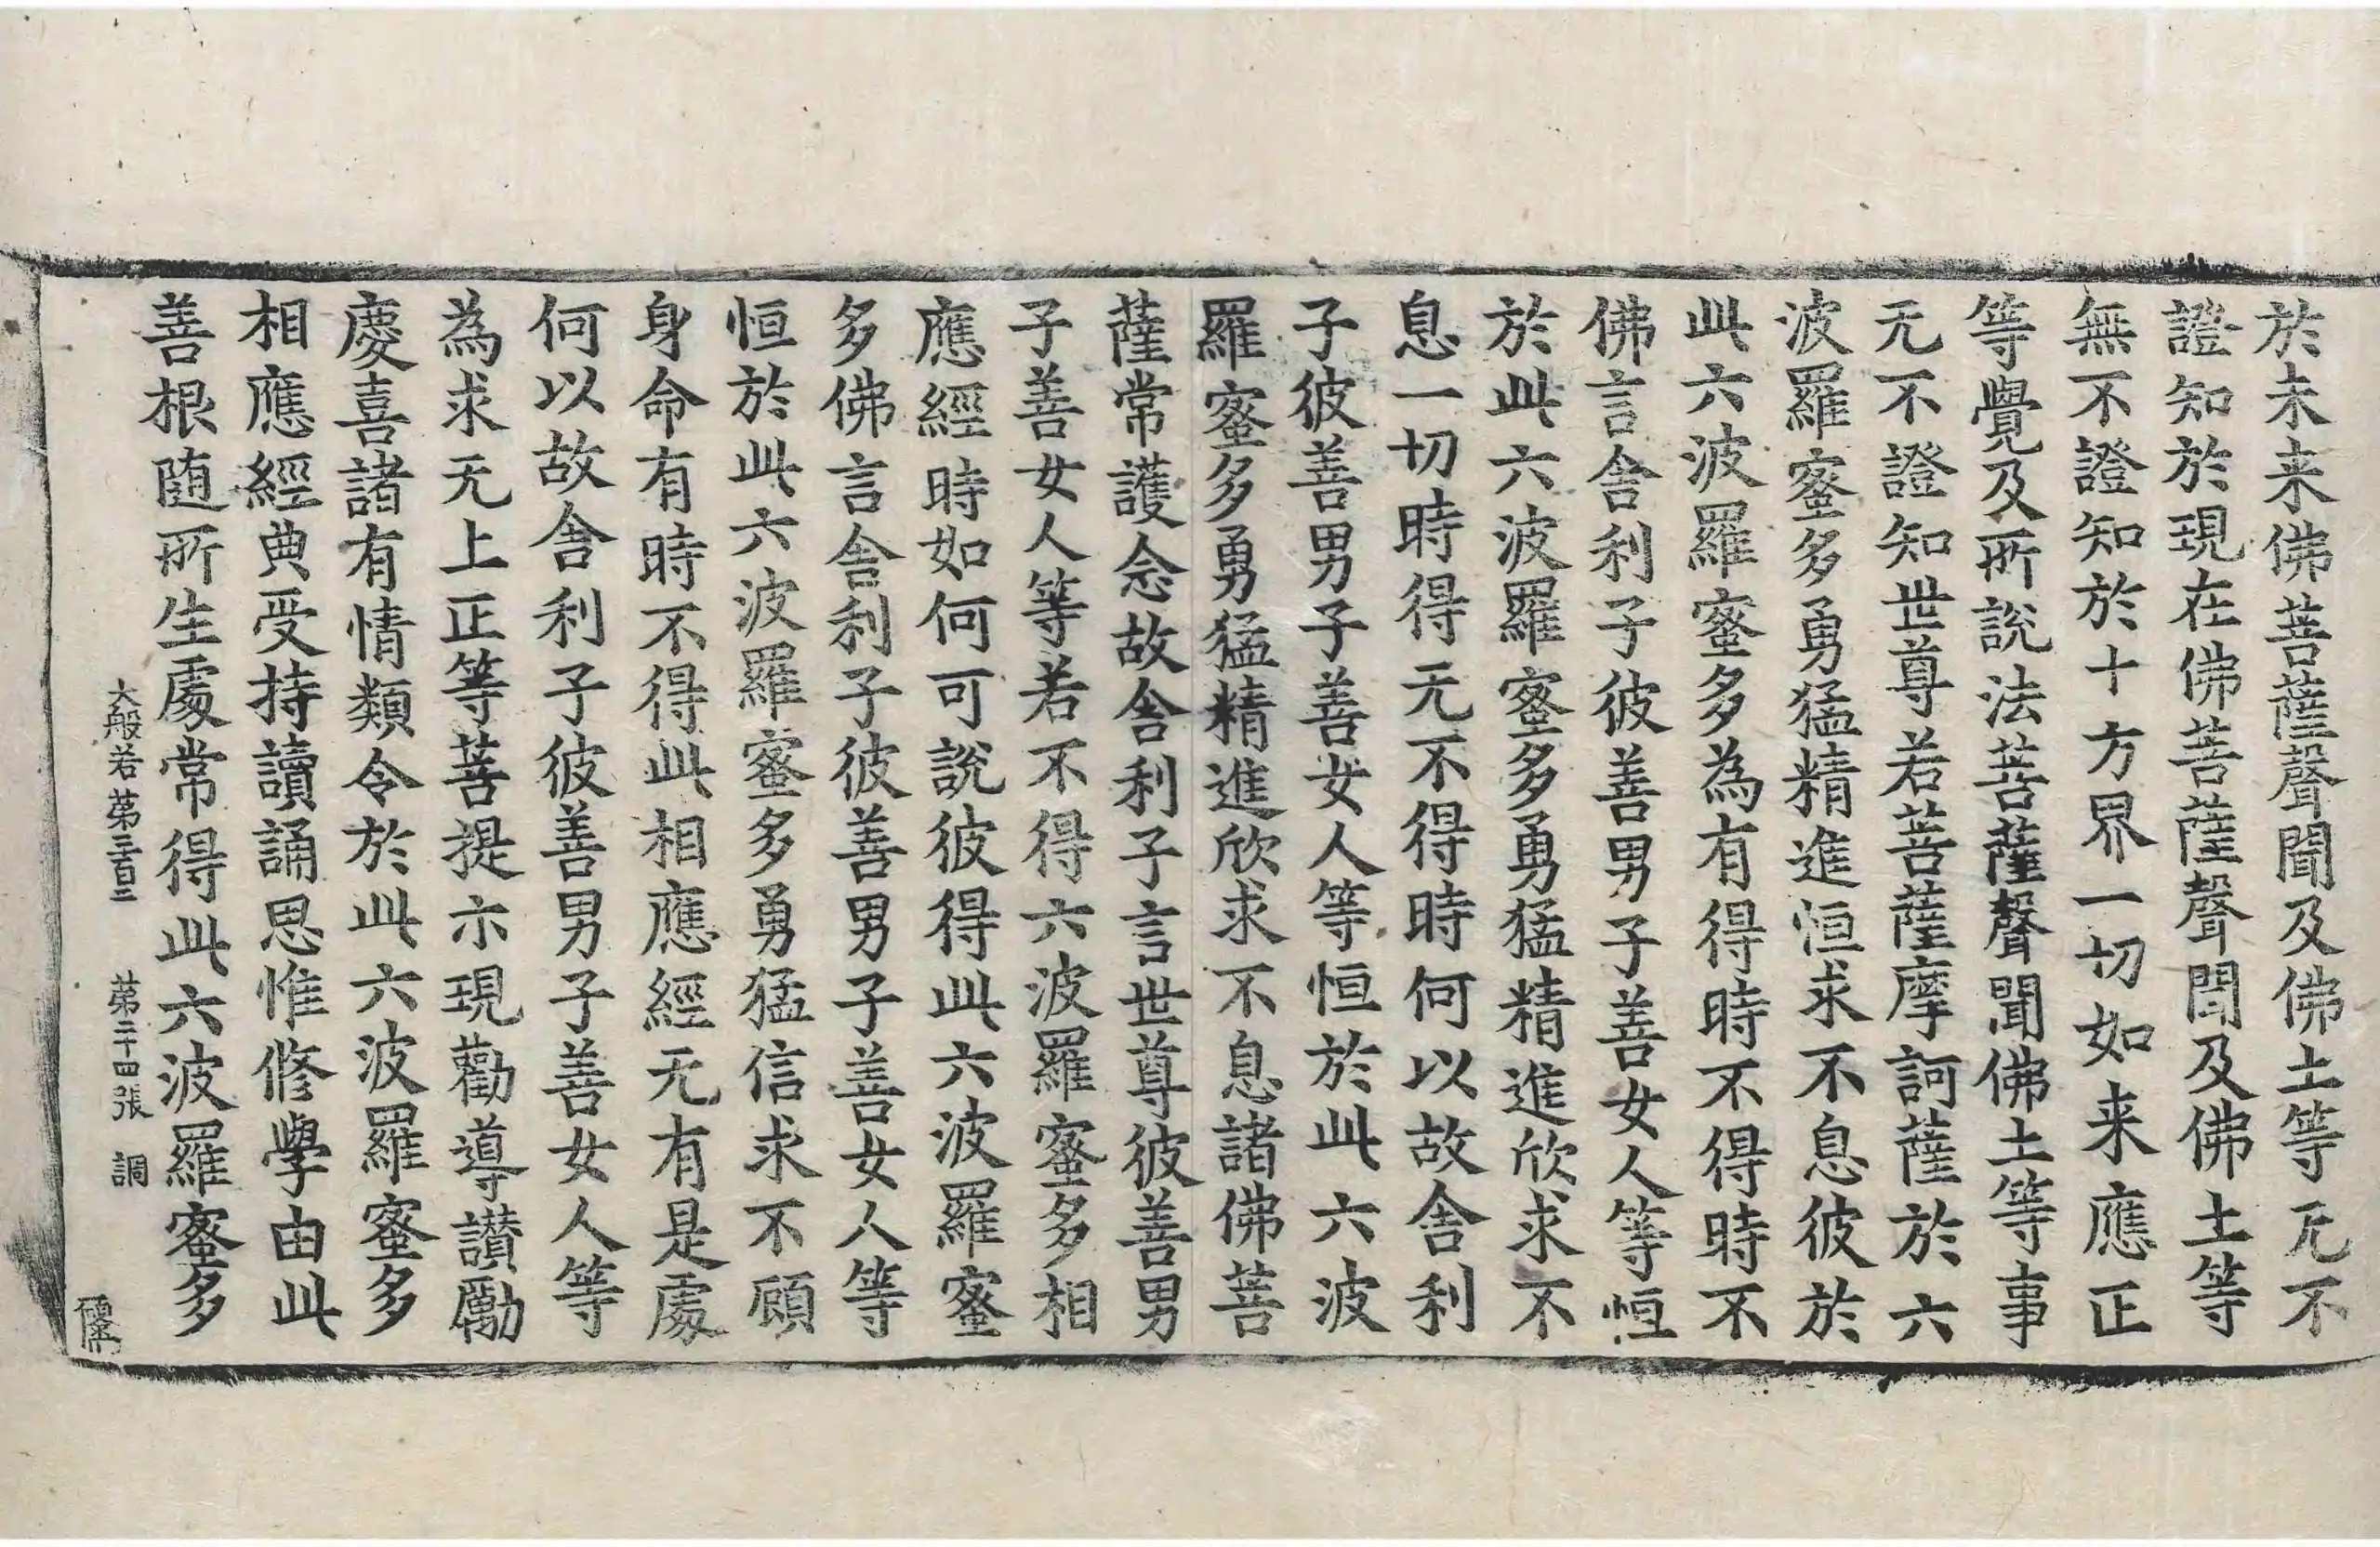 於未来佛菩薩聲聞及佛土等无不
證知於現在佛菩薩聲聞及佛土等
無不證知於十方界一切如来應正
等覺及所說法菩薩聲聞佛土等事
无不證知世尊若菩薩摩訶薩於六
波羅蜜多勇猛精進恒求不息彼於
此六波羅蜜多為有得時不得時不
佛言舍利子彼善男子善女人等恒
於此六波羅蜜多勇猛精進欣求不
息一切時得无不得時何以故舍利
子彼善男子善女人等恒於此六波
羅蜜多勇猛精進欣求不息諸佛菩
薩常護念故舍利子言世尊彼善男
子善女人等若不得六波羅蜜多相
應經時如何可說彼得此六波羅蜜
多佛言舍利子彼善男子善女人等
恒於此六波羅蜜多勇猛信求不顧
身命有時不得此相應經无有是處
何以故舍利子彼善男子善女人等
為求无上正等菩提示現勸導讃勵
慶喜諸有情類令於此六波羅蜜多
相應經典受持讀誦思惟修學由此
善根随所生處常得此六波羅蜜多
大般若第三百二 第二十四張 調